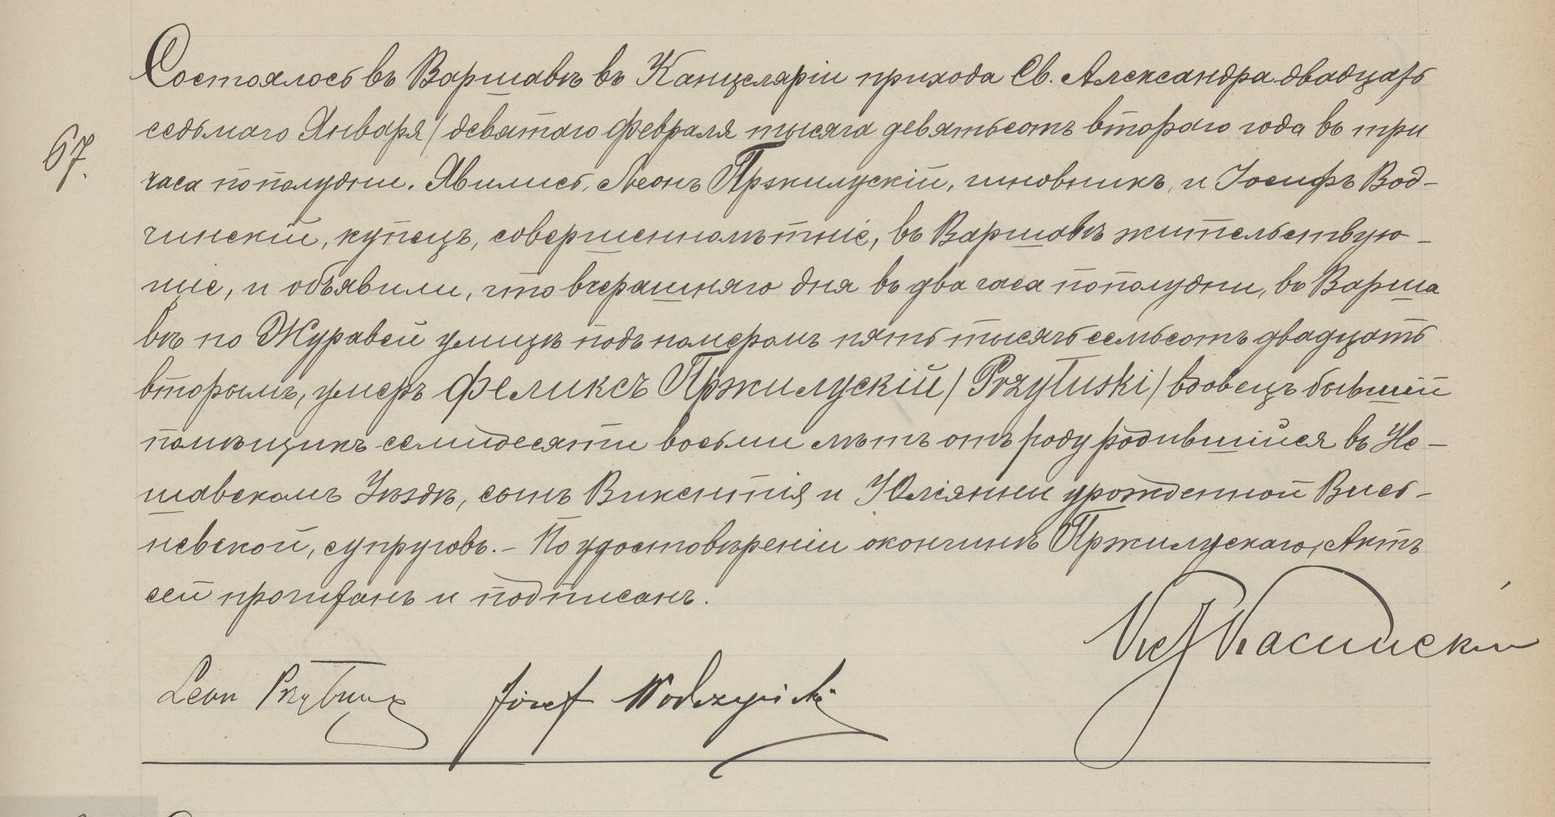 Состоялось въ Варшавѣ въ Канцеляріи прихода Св. Александра двадцать
67.
седьмаго Января / девятаго Февраля тысяча девятьсотъ втораго года въ три
часа пополудни. Явились, Леонъ Пржилускій, чиновникъ, и Іосифъ Вод-
чинскій, купецъ, совершеннолѣтніе, въ Варшавѣ жительствую-
щіе, и объявили, что вчерашняго дня въ два часа пополудни, въ Варша
вѣ по Журавей улицѣ подъ номеромъ пять тысячъ семьсотъ двадцать
вторымъ, умеръ Феликсъ Пржилускій / Przyłuski / вдовецъ бывшій
помѣщикъ семидесяти восьми лѣтъ отъ роду родившійся въ Не-
шавскомъ Уѣздѣ, сынъ Викентія и Юліянны урожденной Вись-
невской, супруговъ. - По удостовѣреніи окончинѣ Пржилускаго, Актъ
сей прочитанъ и подписанъ.
Leon Przyłuski Józef Wodczyński